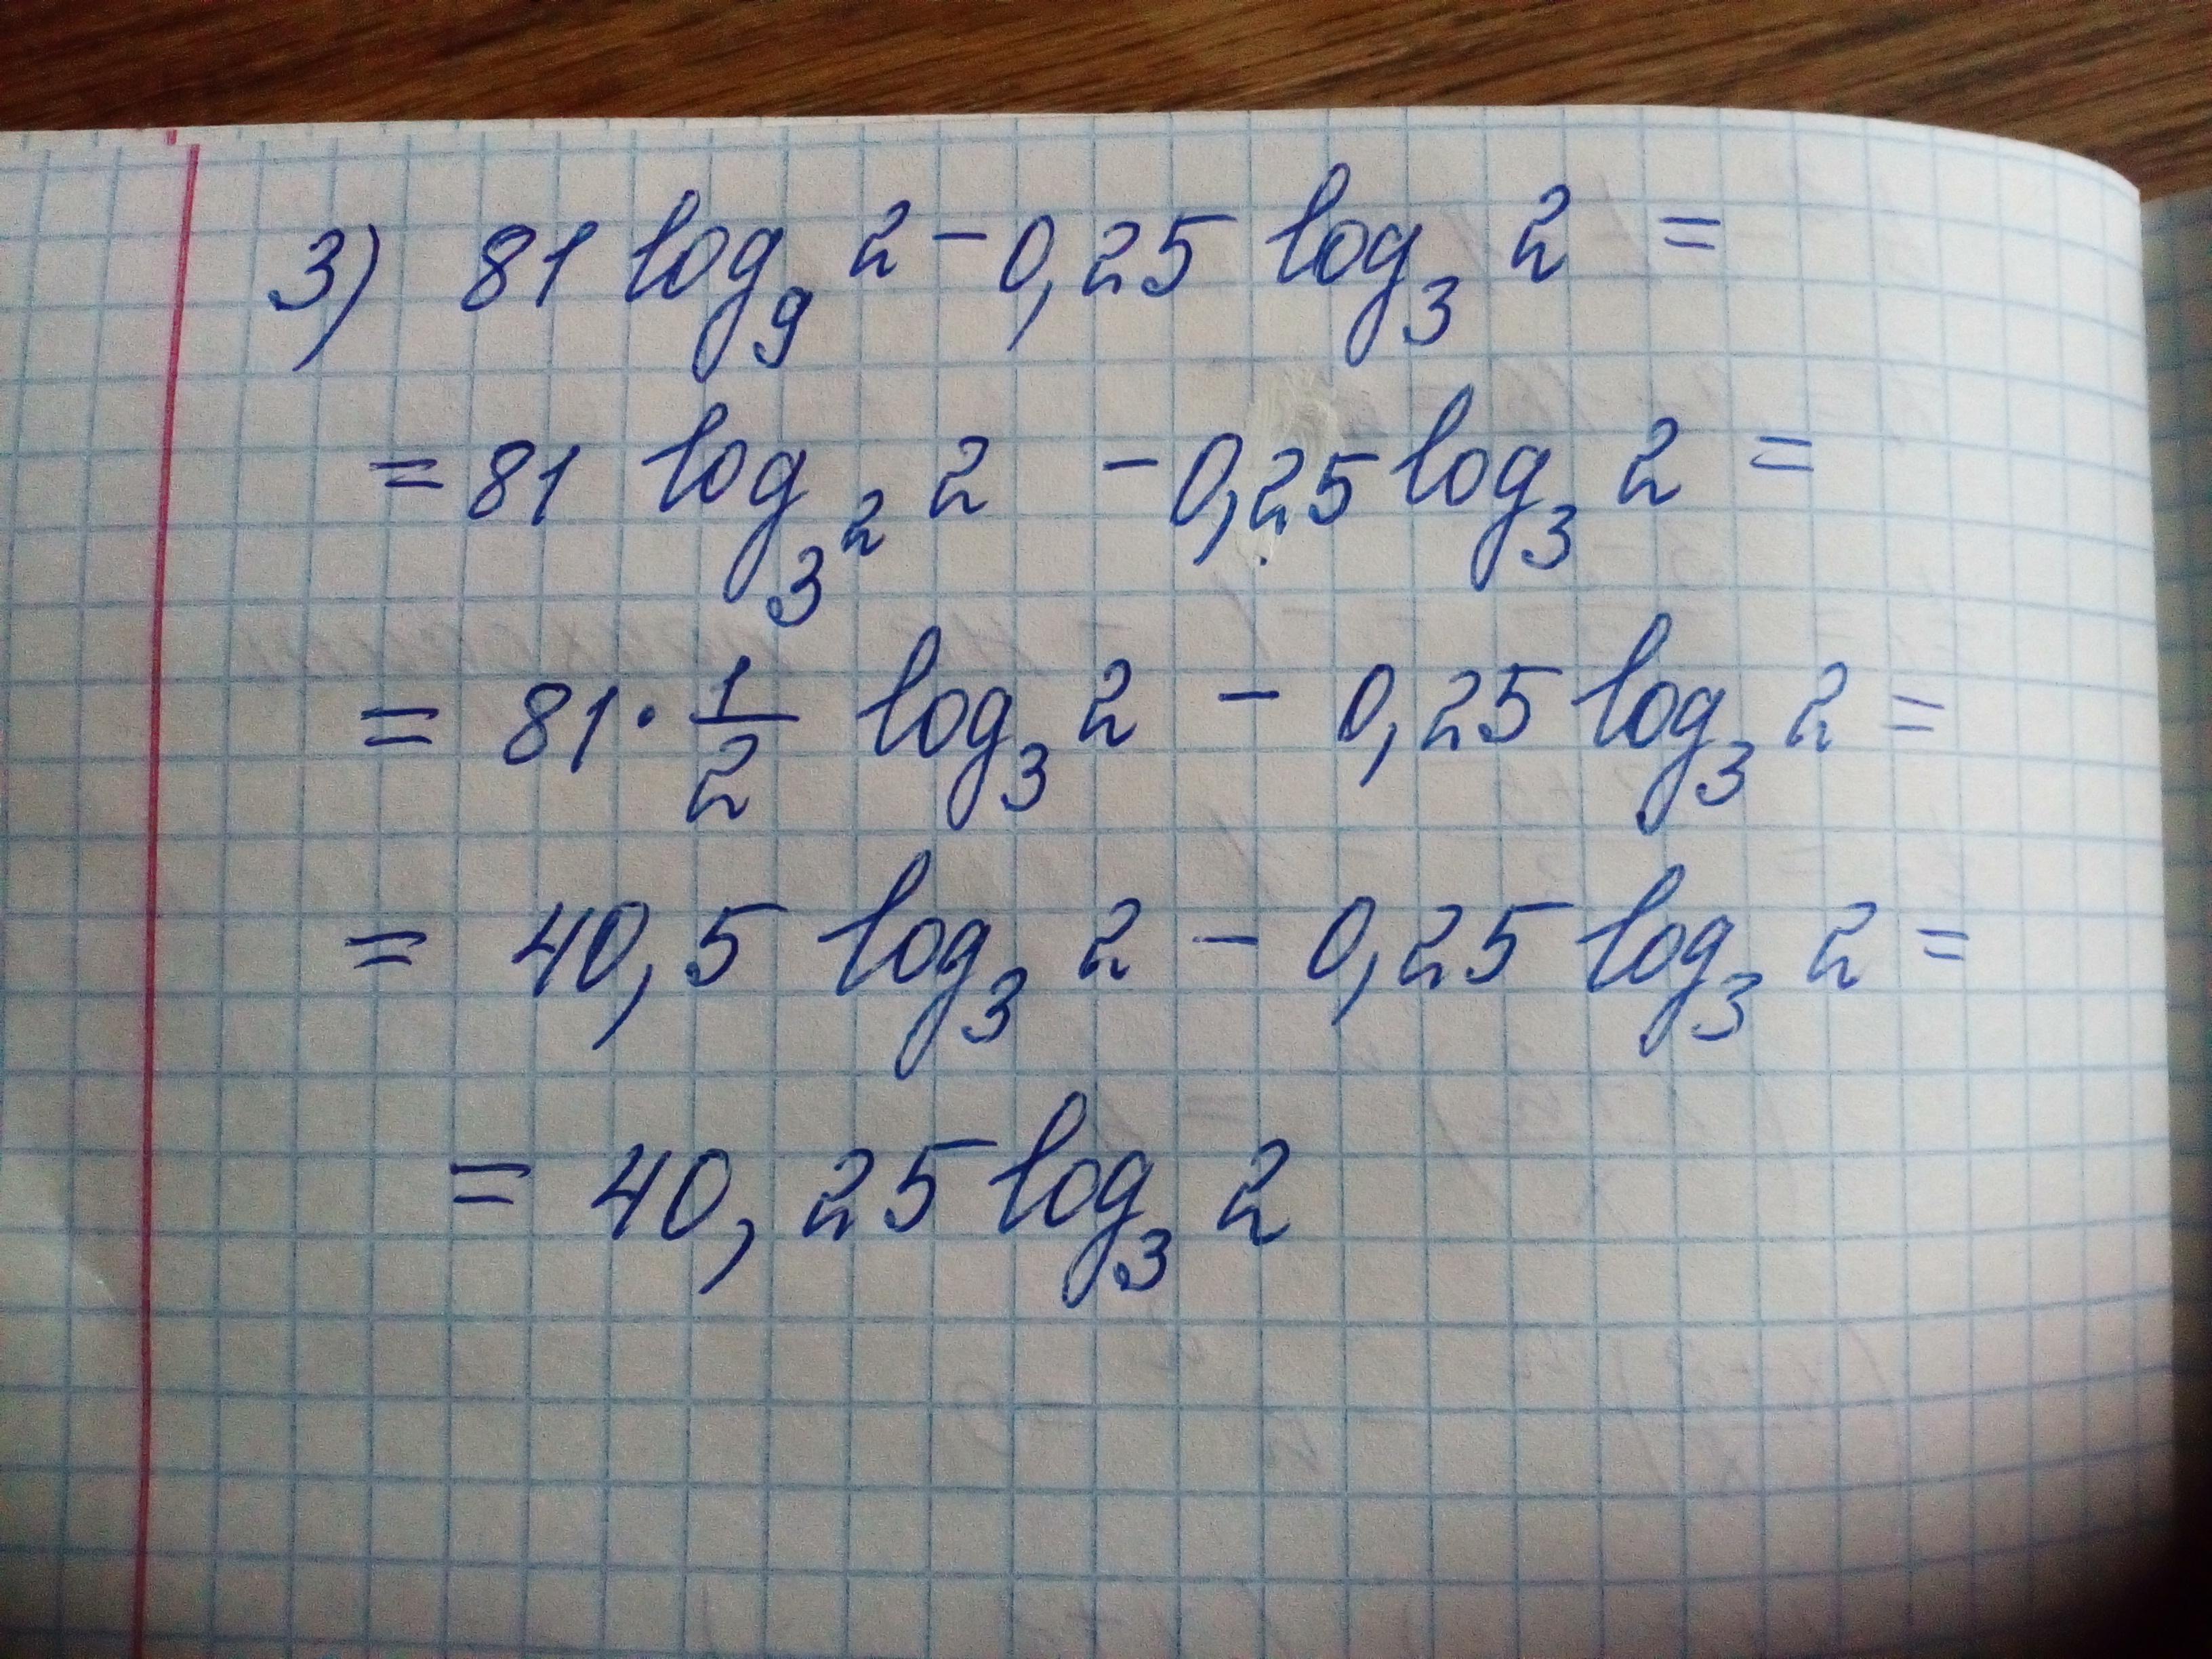 3) 81 log₉ 2 - 0,25 log₃ 2 =
= 81 log₃² 2 - 0,25 log₃ 2 =
= 81 · 1/2 log₃ 2 - 0,25 log₃ 2 =
= 40,5 log₃ 2 - 0,25 log₃ 2 =
= 40,25 log₃ 2